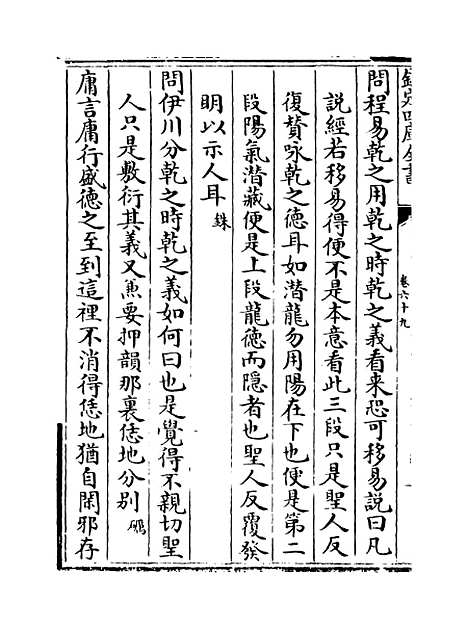 欽定四庫全書
卷六十九
問程易乾之用乾之時乾之義看来恐可移易說曰凡
說經若移易得便不是本意看此三段只是聖人反
復賛咏乾之德耳如潛龍勿用陽在下也便是第二
段陽氣潛藏便是上段龍德而隠者也聖人反覆發
明以示人耳 銖
問伊川分乾之時乾之義如何曰也是覺得不親切聖
人只是敷衍其義又兼要押韻那裏恁地分别 礪
庸言庸行盛德之至到這裡不消得恁地猶自閑邪存